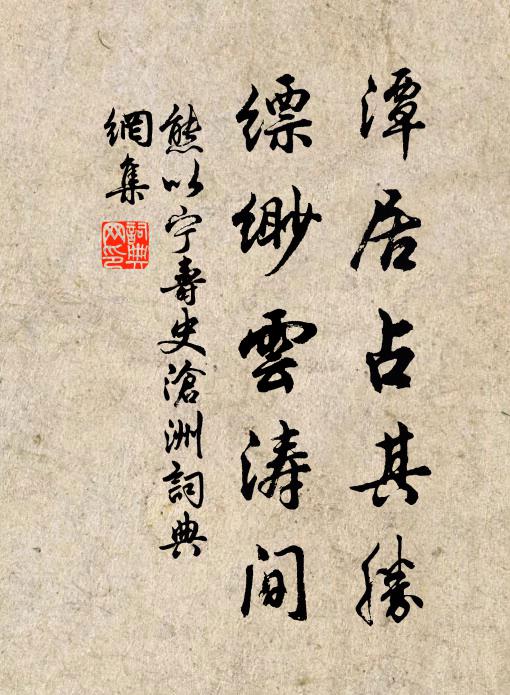 潭居占其勝
缥缈雲涛间
熊以宁壽史滄洲詞典
網集
詞典
网印